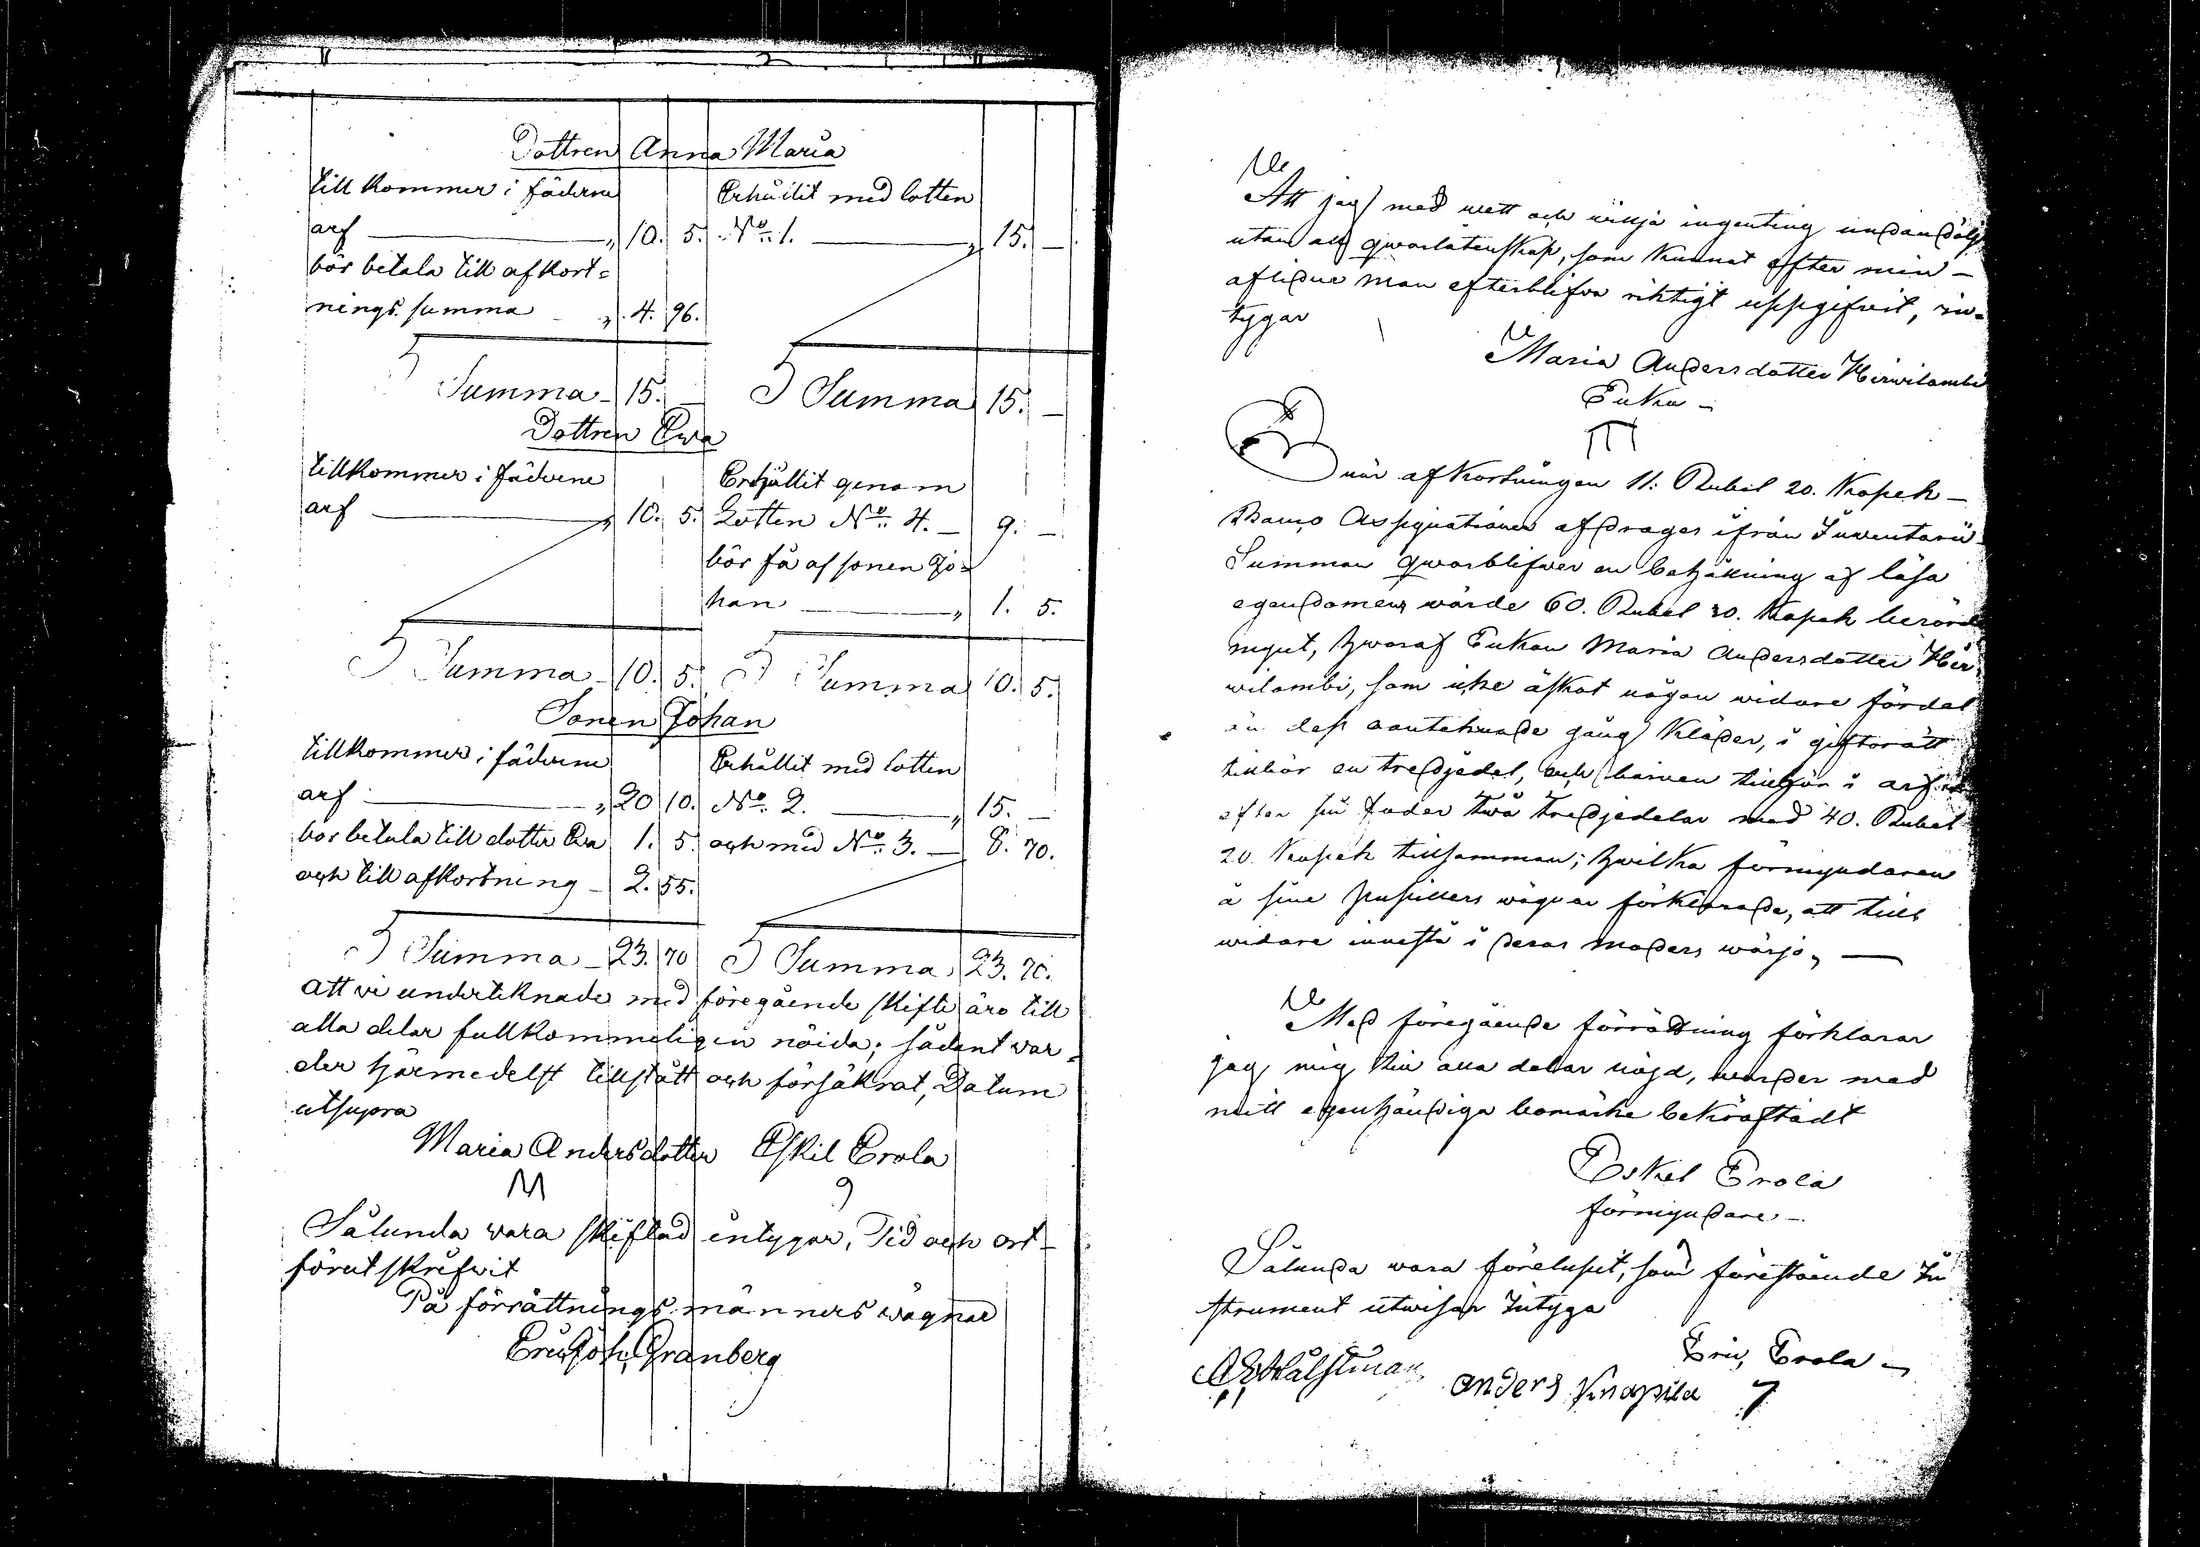 Dottren Anna Maria
till kommer i fäderne
arf — „ 10. 5.
bör betala till afkort=
nings summa — „ 4. 96.
Summa — 15. —
Erhållit med lotten
No. 1. — „ 15. —
Summa 15. —
Dottren Ewa
tillkommer i fäderne
arf — „ 10. 5.
Summa — 10. 5.
Erhållit genom
Lotten No. 4. — 9. —
bör få af sonen Jo=
han — „ 1. 5.
Summa 10. 5.
Sonen Johan
tillkommer i fäderne
arf — „ 20 10.
bör betala till dotter Ewa 1. 5.
och till afkortning — 2. 55.
Summa — 23. 70
Erhållit med lotten
No. 2. — „ 15. —
och med No. 3. — 8. 70.
Summa 23. 70.
att vi underteknade med föregående skifte äro till
alla delar fullkommeligen nöida; sådant var=
der härmedelst tillstått och försäkrat, Datum
utsupra
Maria Andersdotter Eskil Erola
M
Sålunda vara skiftad intygar, Tid och ort
förut skrifwit
På förrättnings männers wägnar
Eric Joh. Granberg
Att jag med wett och wilja ingenting undandölgt
utan all qwarlåtenskap, som kunnat efter min
aflidne man efterblifwa riktigt uppgifwit, in=
tygar
Maria Andersdotter Hirwilambi
Enka —
När afkortningen 11: Rubel 20. Kopek
Banco Assignationer afdrages ifrån Inventarii
Summan qwarblifwer en behållning af lösa
egendomens wärde 60. Rubel 30. Kopek berörde
mynt, hwaraf Enkan Maria Andersdotter Hir=
wilambi, som icke äskat någon widare fördel
än dess aantecknade gång kläder, i giftorätt
tillhör en tredjedel, och barnen tillhör i arf
efter sin fader twå tredjedelar med 40. Rubel
20. Kopek tillsamman; hwilka förmyndaren
å sine pupillers wägnar förklarade, att tills
widare innestå i deras moders wärjo, —
Med föregående förrättning förklarar
jag mig till alla delar nöjd, warder med
mitt egenhändiga bomärke bekräftadt
Eskil Erola
förmyndare —
Sålunda wara förelupit, som förestående In
strument utwisar Intyga
Eric Erola —
anders Knapila